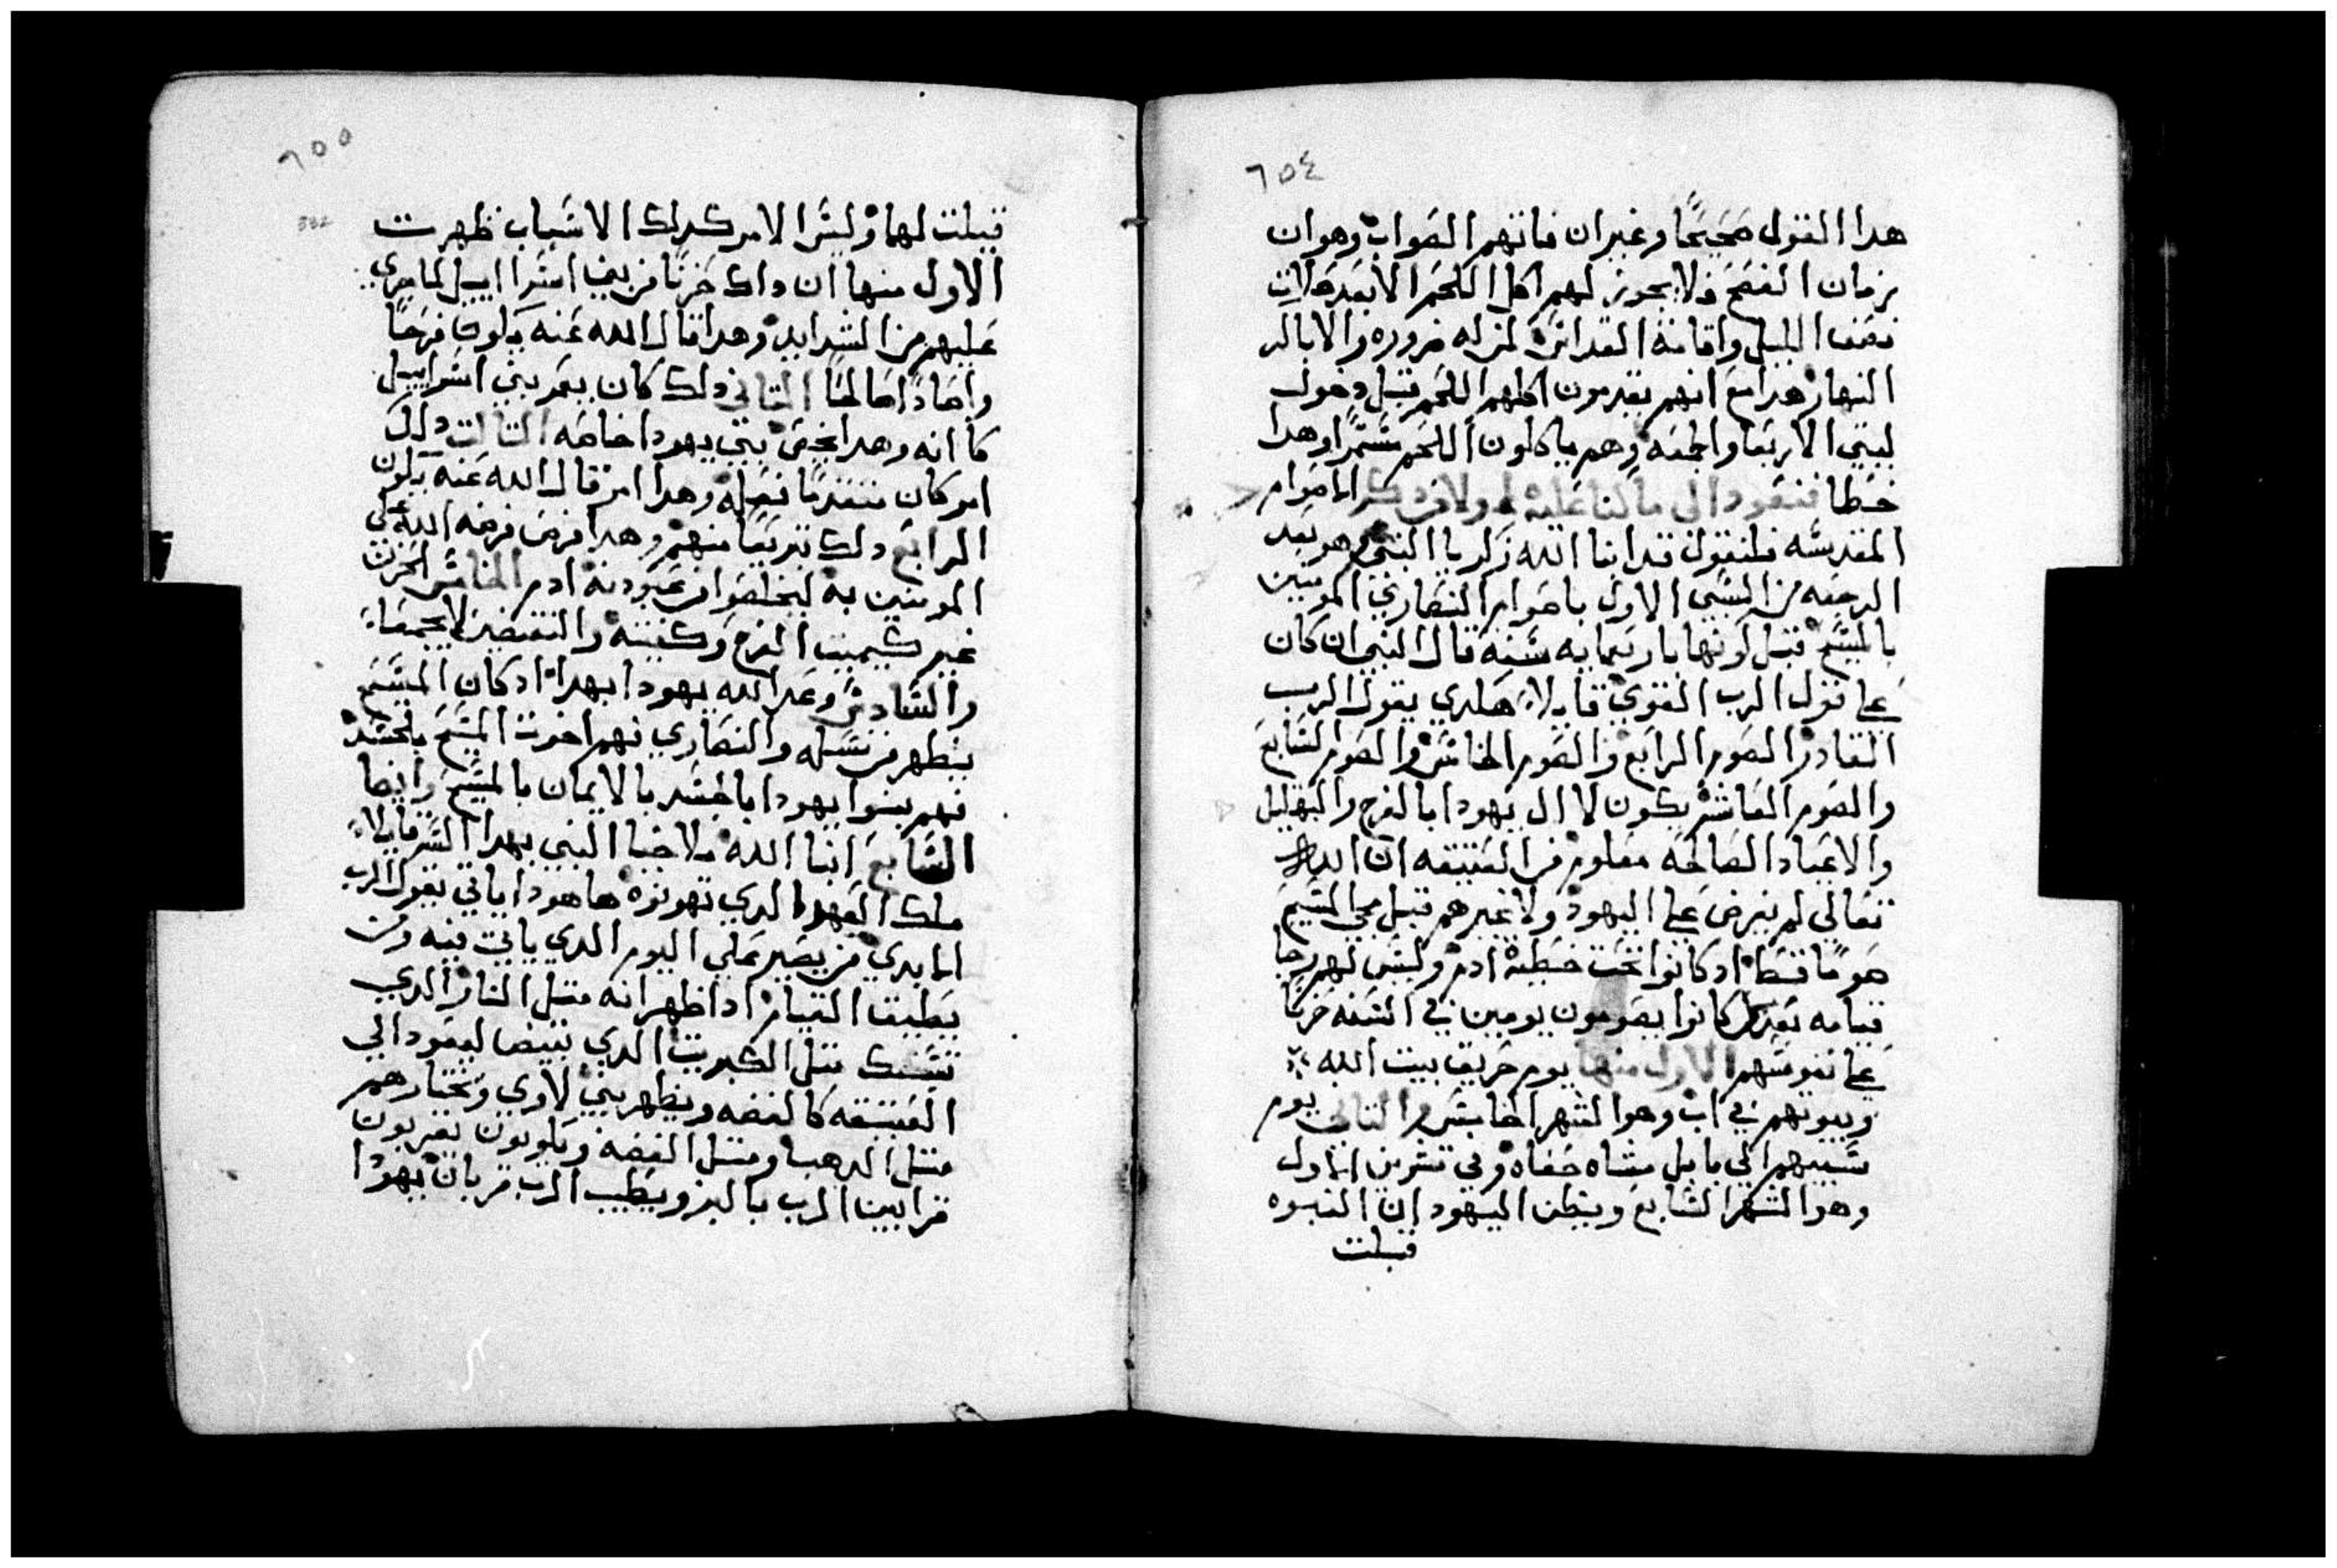 ٦٥٤
هدا القول صحيحًا وغير ان فاتهم الصواب وهو ان
زمان الفصح فلا يجوز لهم اكل اللحم الا بعد صلات
نصف الليل واقامة القداس لمن له ضروره والا باكر
النهار هدا مع انهم يقدمون اكلهم اللحم قبل دخول
ليلتي الاربعا والجمعه وهم ياكلون اللحم مستمرًا وهدا
خطا فنعود الى ما كنا عليه اولا من دكر الاصوام
المقدسه فلنقول قد انبا الله زكريا النبي وهو بعد
الرجعه من السبي الاول باصوام النصاري المومنين
بالمسيح قبل كونها باربعمايه سنه قال النبي ان كان
علي قول الرب القوي قايلاً هكدي يقول الرب
القادر الصوم الرابع والصوم الخامس والصوم السابع
والصوم العاشر يكون لال يهودا بالفرح والتهليل
والاعياد الصالحه معلوم من العتيقه ان الله
تعالي لم يفرض علي اليهود ولا غيرهم قبل مجي المسيح
صومًا قط اد كانوا تحت خطية ادم وليس لهم رجا
قيامه بعد بل كانوا يصومون يومين في السنه حزنًا
علي نفوسهم الاول منها يوم حريق بيت الله
وبيوتهم في اب وهو الشهر الخامس والتاني يوم
سبيهم الي بابل مشاه حفاه وفي تشرين الاول
وهو الشهر السابع ويظن اليهود ان النبوه
قبلت
٦٥٥
قبلت لهما وليس الامر كدلك الاسباب ظهرت
الاول منها ان داك حزنًا من بني اسراييل لما جري
عليهم من الشدايد وهدا قال الله عنه يكون فرحًا
واعيادًا صالحًا التاني دلك كان يعم بني اسراييل
كافه وهدا يخص بني يهودا خاصه التالت دلك
امر كان متقدمًا فعله وهدا امر قال الله عنه يكون
الرابع دلك تبرعًا منهم وهدا فرض فرضه الله علي
المومنين به ليخلصوا من عبودية ادم الخامس الحزن
غير كيميت الفرح وكفيته والنقيضين لا يجتمعان
والسادس وعد الله يهودا بهدا اد كان المسيح
يظهر من نسله والنصاري فهم اخوت المسيح بالجسد
فهم بنوا يهودا بالجسد بالايمان بالمسيح وايضا
السابع انبا الله ملاخيا النبي بهدا السر قايلاً
ملك العهد الدي تهونوه هاهودا ياتي يقول الرب
الابدي من يصبر علي اليوم الدي ياتي فيه ومن
يطيق القيام ادا ظهر انه متل النار الدي
تسبك متل الكبريت الدي تبيض ليعود الي
العتيقه كالفضه ويطهر بني لاوي ويختارهم
متل الدهب ومتل الفضه ويكونون يقربون
قرابين الرب بالبر ويطيب الرب قربان يهودا